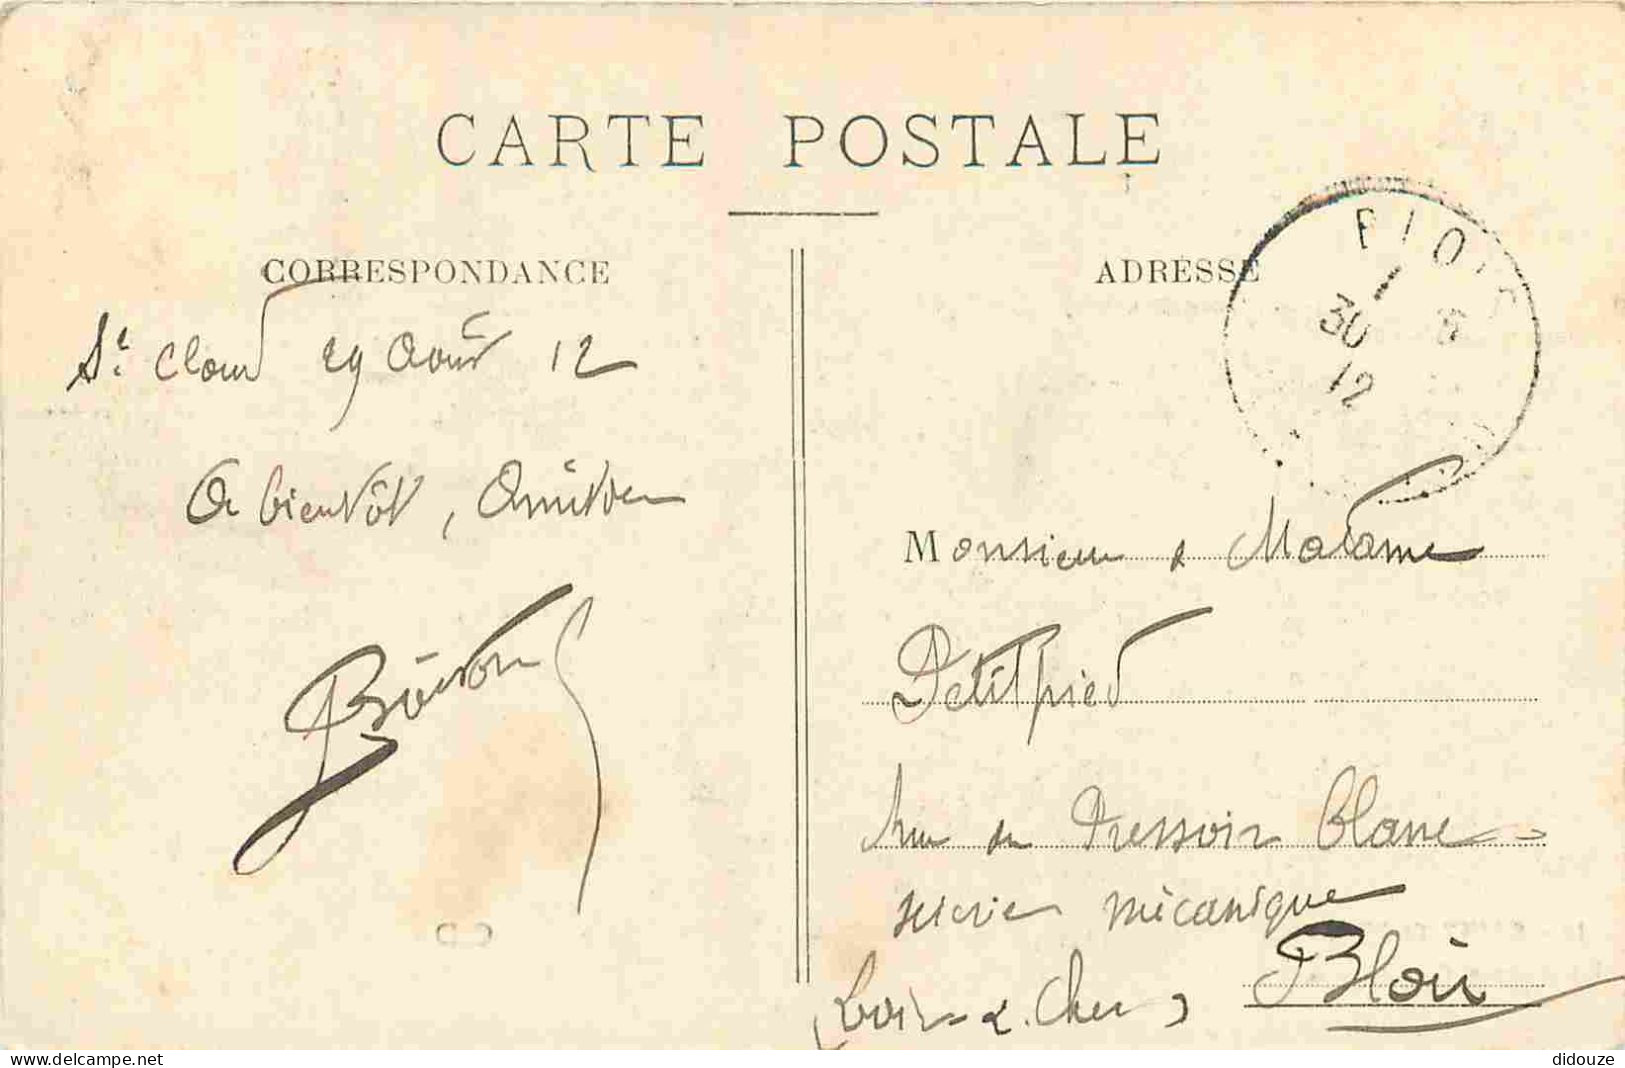 CARTE POSTALE
CORRESPONDANCE
ADRESSE
BLOIS
30
12
St Cloud 29 Août 12
A bientôt, Amitiés
Monsieur & Madame
Petitpied
rue du Pressoir Blanc
scierie mécanique
Blois
(Loir & Cher)
didouze